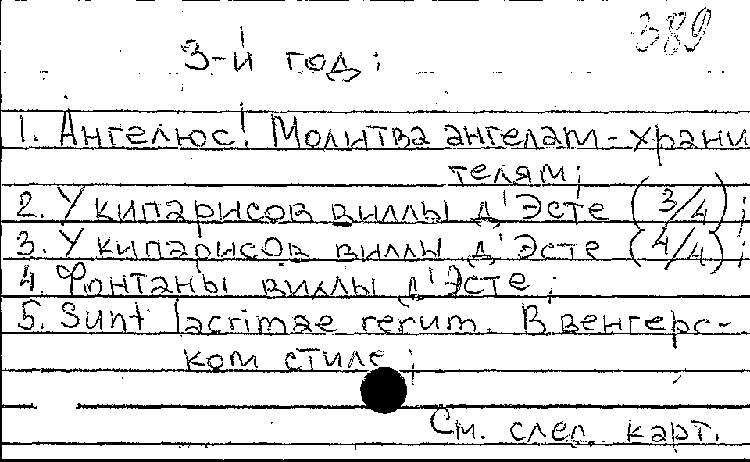 389
3-й год:
1. Ангелюс! Молитва ангелам-храни
телям;
2. У кипарисов виллы д'Эсте (3/4);
3. У кипарисов виллы д'Эсте (4/4);
4. Фонтаны виллы д'Эсте;
5. Sunt lacrimae rerum. В венгерс-
ком стиле;
См. след. карт.